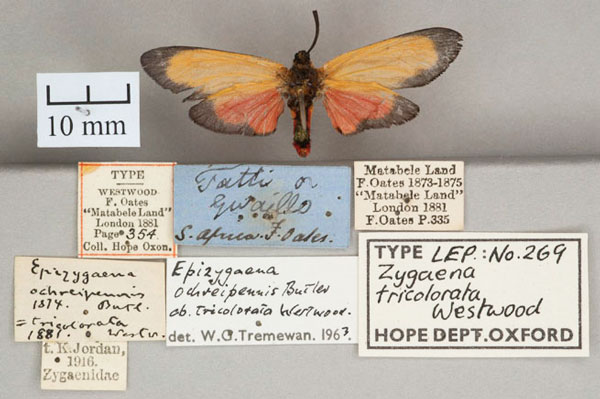 10 mm
TYPE
WESTWOOD
F. Oates
"Matabele Land"
London 1881
Page 354
Coll. Hope Oxon.
Tatti or
Gwailo
S. Africa. F. Oates.
Matabele Land
F. Oates 1873-1875
"Matabele Land"
London 1881
F. Oates P.335
Epizygaena
ochreipennis
1874. Butl.
= tricolorata
1881. Westw.
Epizygaena
ochreipennis Butler
ab. tricolorata Westwood.
det. W.G. Tremewan. 1963
TYPE LEP.: No. 269
Zygaena
tricolorata
Westwood
HOPE DEPT. OXFORD
t. K. Jordan,
1916.
Zygaenidae